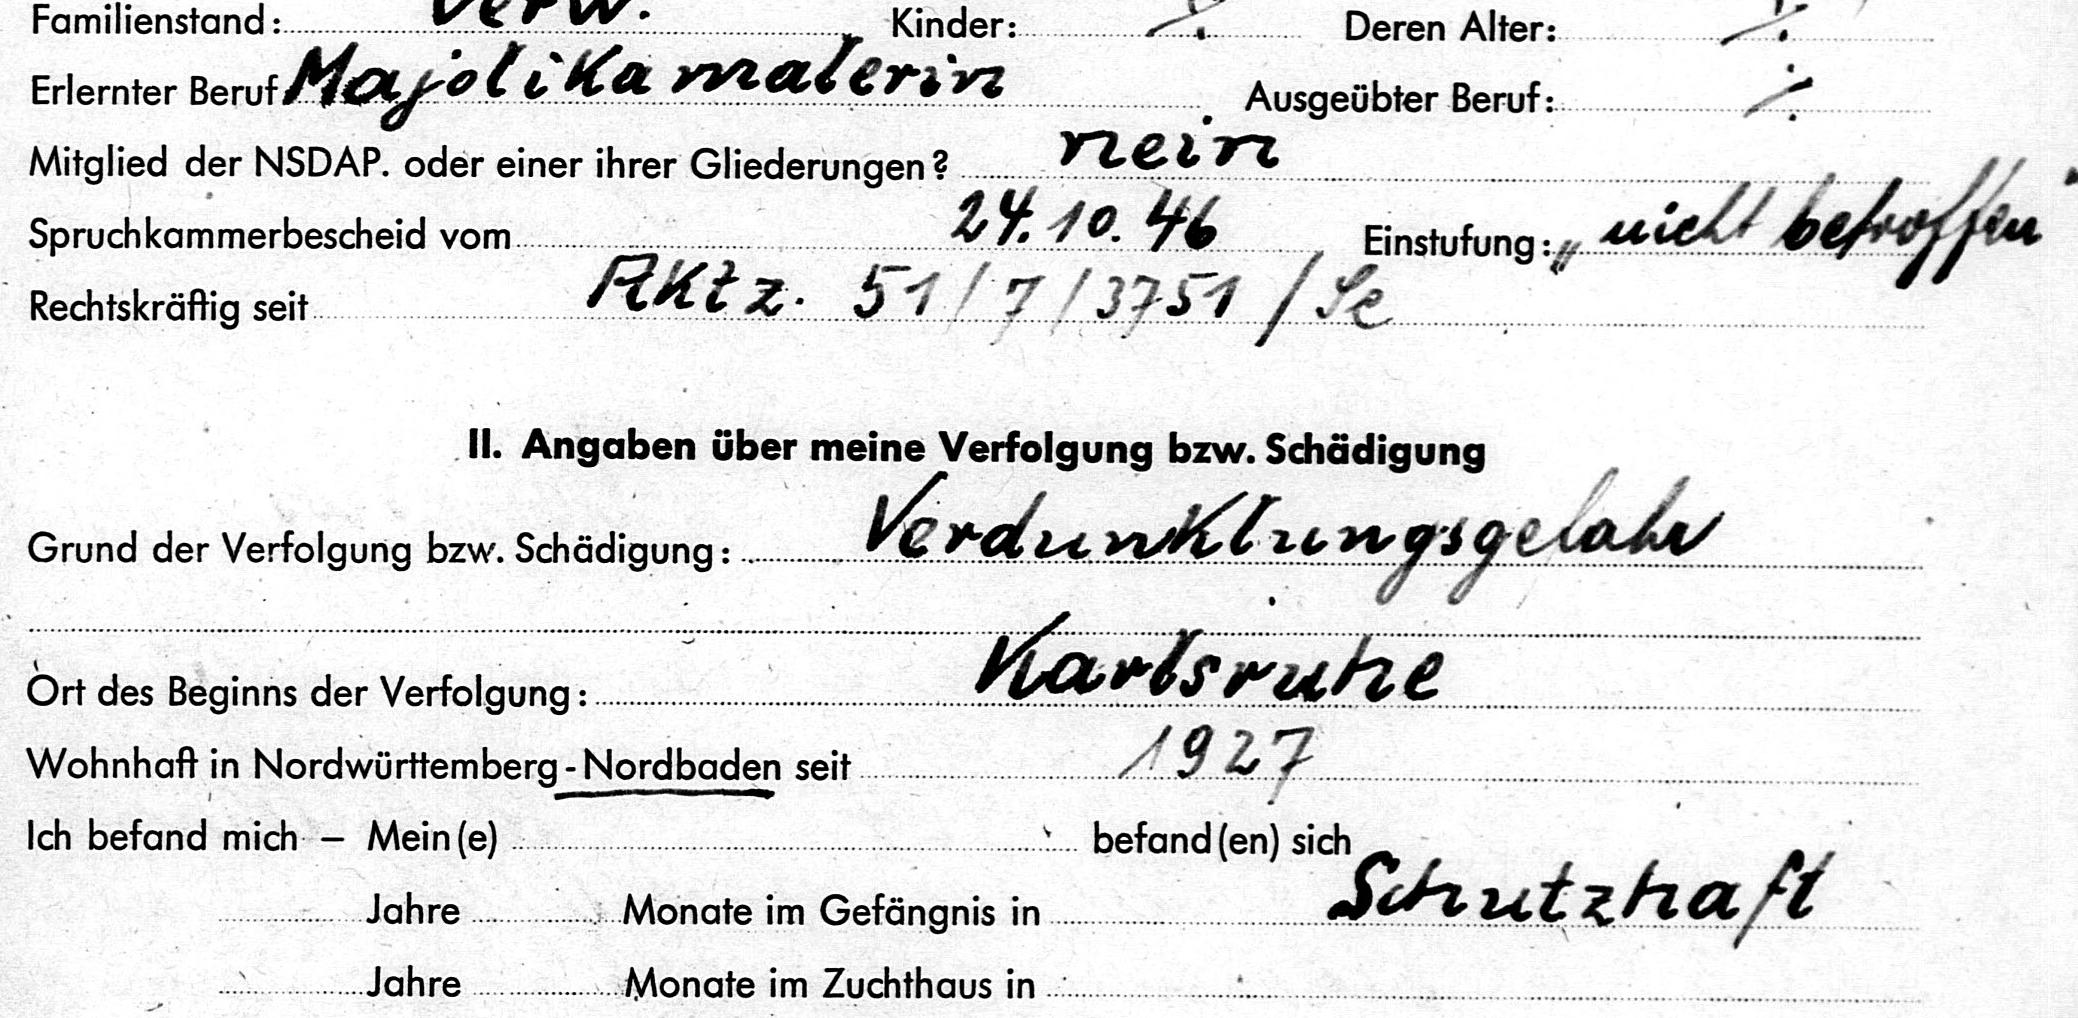 Familienstand: verw. Kinder: ./. Deren Alter: ./.
Erlernter Beruf Majolikamalerin Ausgeübter Beruf: ./.
Mitglied der NSDAP. oder einer ihrer Gliederungen? nein
Spruchkammerbescheid vom 24.10.46 Einstufung: „nicht betroffen"
Rechtskräftig seit AKtz. 51/7/3751/Se
II. Angaben über meine Verfolgung bzw. Schädigung
Grund der Verfolgung bzw. Schädigung: Verdunklungsgefahr
Ort des Beginns der Verfolgung: Karlsruhe
Wohnhaft in Nordwürttemberg-Nordbaden seit 1927
Ich befand mich – Mein(e) befand(en) sich
Jahre Monate im Gefängnis in Schutzhaft
Jahre Monate im Zuchthaus in